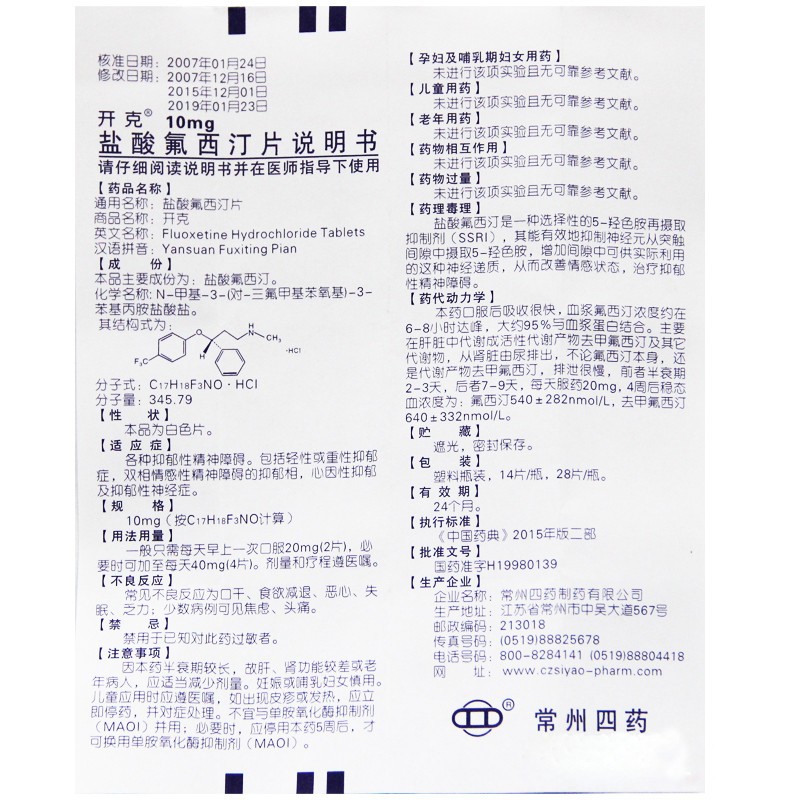 核准日期：2007年01月24日
修改日期：2007年12月16日
2015年12月01日
2019年01月23日
开克® 10mg
盐酸氟西汀片说明书
请仔细阅读说明书并在医师指导下使用
【药品名称】
通用名称：盐酸氟西汀片
商品名称：开克
英文名称：Fluoxetine Hydrochloride Tablets
汉语拼音：Yansuan Fuxiting Pian
【成 份】
本品主要成份为：盐酸氟西汀。
化学名称：N-甲基-3-(对-三氟甲基苯氧基)-3-
苯基丙胺盐酸盐。
其结构式为：
F₃C O H NH CH₃ ·HCl
分子式：C17H18F3NO·HCl
分子量：345.79
【性 状】
本品为白色片。
【适 应 症】
各种抑郁性精神障碍。包括轻性或重性抑郁
症，双相情感性精神障碍的抑郁相，心因性抑郁
及抑郁性神经症。
【规 格】
10mg（按C17H18F3NO计算）
【用法用量】
一般只需每天早上一次口服20mg(2片)，必
要时可加至每天40mg(4片)。剂量和疗程遵医嘱。
【不良反应】
常见不良反应为口干、食欲减退、恶心、失
眠、乏力；少数病例可见焦虑、头痛。
【禁 忌】
禁用于已知对此药过敏者。
【注意事项】
因本药半衰期较长，故肝、肾功能较差或老
年病人，应适当减少剂量。妊娠或哺乳妇女慎用。
儿童应用时应遵医嘱，如出现皮疹或发热，应立
即停药，并对症处理。不宜与单胺氧化酶抑制剂
（MAOI）并用；必要时，应停用本药5周后，才
可换用单胺氧化酶抑制剂（MAOI）。
【孕妇及哺乳期妇女用药】
未进行该项实验且无可靠参考文献。
【儿童用药】
未进行该项实验且无可靠参考文献。
【老年用药】
未进行该项实验且无可靠参考文献。
【药物相互作用】
未进行该项实验且无可靠参考文献。
【药物过量】
未进行该项实验且无可靠参考文献。
【药理毒理】
盐酸氟西汀是一种选择性的5-羟色胺再摄取
抑制剂（SSRI），其能有效地抑制神经元从突触
间隙中摄取5-羟色胺，增加间隙中可供实际利用
的这种神经递质，从而改善情感状态，治疗抑郁
性精神障碍。
【药代动力学】
本药口服后吸收很快，血浆氟西汀浓度约在
6-8小时达峰，大约95%与血浆蛋白结合。主要
在肝脏中代谢成活性代谢产物去甲氟西汀及其它
代谢物，从肾脏由尿排出，不论氟西汀本身，还
是代谢产物去甲氟西汀，排泄很慢，前者半衰期
2-3天，后者7-9天，每天服药20mg，4周后稳态
血浓度为：氟西汀540±282nmol/L，去甲氟西汀
640±332nmol/L。
【贮 藏】
遮光，密封保存。
【包 装】
塑料瓶装，14片/瓶，28片/瓶。
【有 效 期】
24个月。
【执行标准】
《中国药典》2015年版二部
【批准文号】
国药准字H19980139
【生产企业】
企业名称：常州四药制药有限公司
生产地址：江苏省常州市中吴大道567号
邮政编码：213018
传真号码：(0519)88825678
电话号码：800-8284141 (0519)88804418
网 址：www.czsiyao-pharm.com
® 常州四药